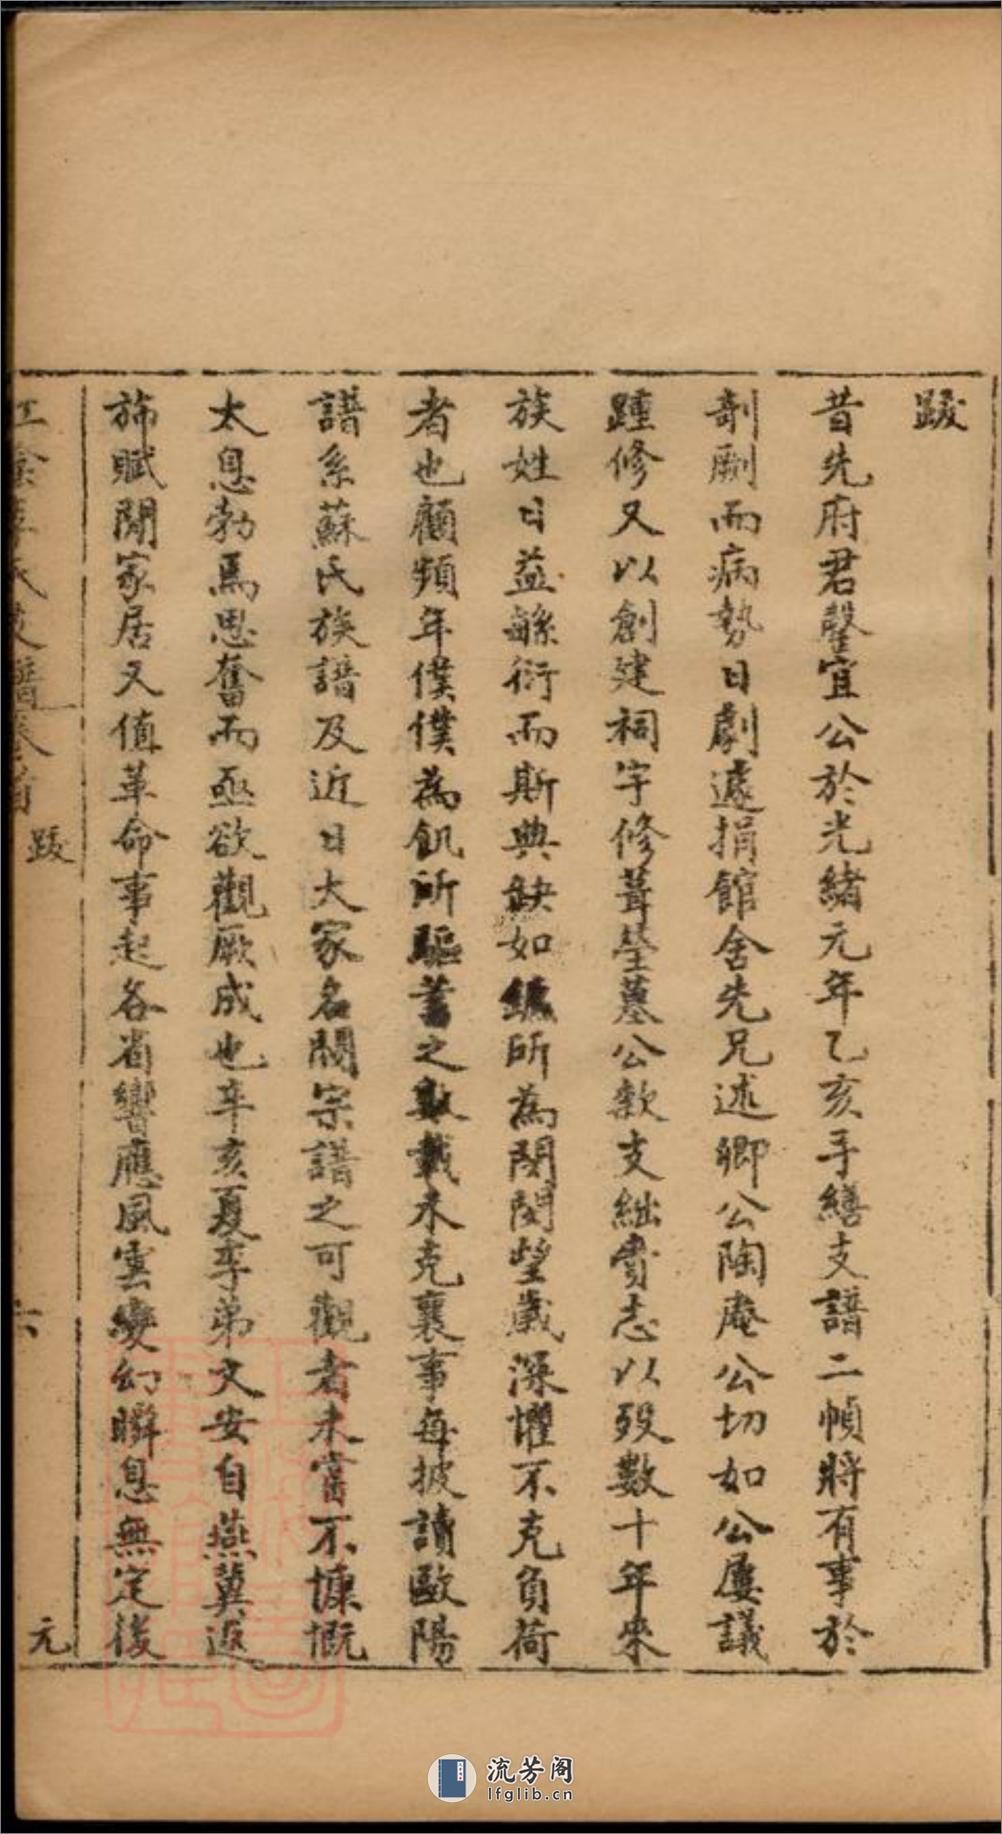 跋
昔先府君罄宜公於光緒元年乙亥手繕支譜二幀將有事於
剞劂而病勢日劇遽捐館舍先兄述卿公陶庵公切如公屢議
踵修又以創建祠宇修葺塋墓公款支絀賫志以歿數十年來
族姓日益繇衍而斯典缺如鎭所為閔閔望歲深懼不克負荷
者也顧頻年僕僕為飢所驅蓄之數載未克襄事每披讀歐陽
譜系蘇氏族譜及近日大家名閥宗譜之可觀者未嘗不慷慨
太息勃焉思奮而亟欲觀厥成也辛亥夏季弟文安自燕冀返
斾賦閒家居又值革命事起各省響應風雲變幻瞬息無定後
氏支譜卷首
跋
六
元
流芳阁
lfglib.cn